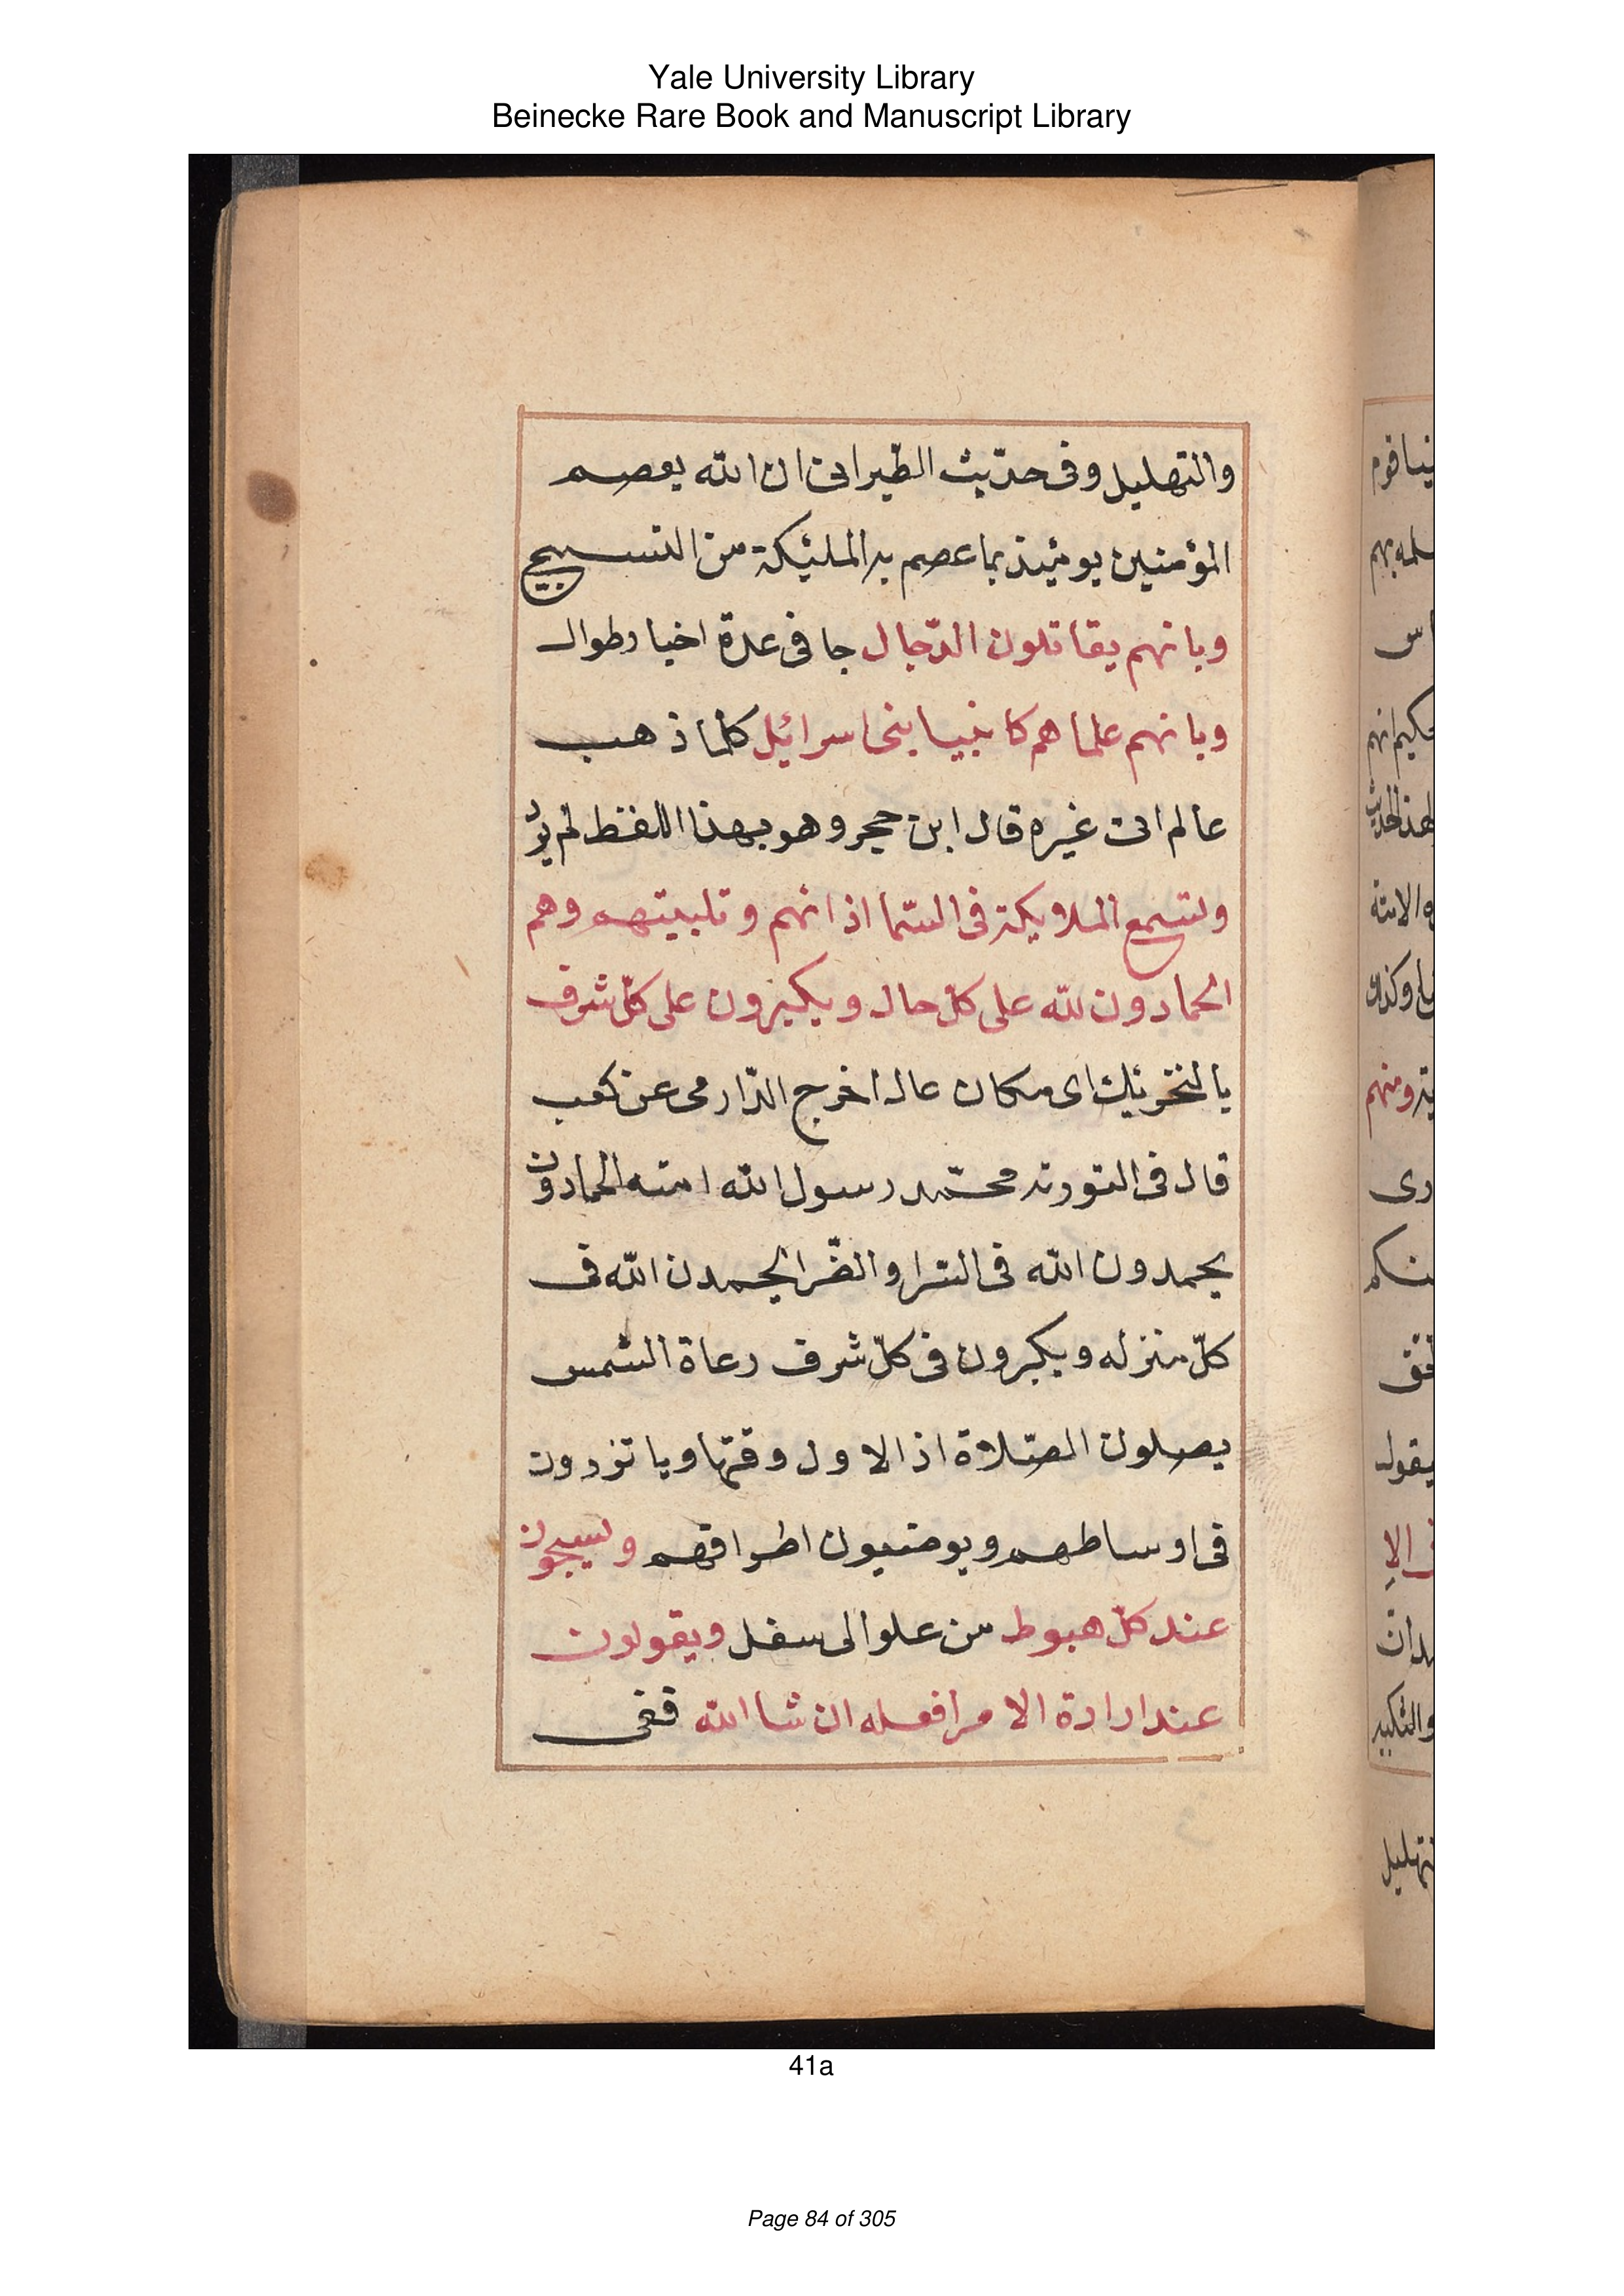 Yale University Library
Beinecke Rare Book and Manuscript Library
والتهليل وفى حديث الطبرانى ان الله يعصم
المؤمنين يومئذ بما عصم به المليكة من التسبيح
وبانهم يقاتلون الدّجال جا فى عدة اخبار طوال
وبانهم علماهم كانبيا بنى اسرائيل كلما ذهب
عالم اتى غيره قال ابن حجر وهو بهذا اللفظ لم يرد
وتسمع الملايكة فى السّما اذانهم وتلبيتهم وهم
الحمادون لله على كلّ حال ويكبرون على كلّ شرف
بالتحريك اى مكان عال اخرج الدّارمى عن كعب
قال فى التورته محمّد رسول الله امته الحمادون
يحمدون الله فى السّرا والضّرا يحمدن الله فى
كلّ منزله ويكبرون فى كلّ شرف رعاة الشمس
يصلون الصّلاة اذ الاول وقتها وياتزرون
فى اوساطهم ويوضيون اطرافهم ويسبحون
عند كلّ هبوط من علو الى سفل ويقولون
عند ارادة الامر افعله ان شا الله ففى
41a
Page 84 of 305